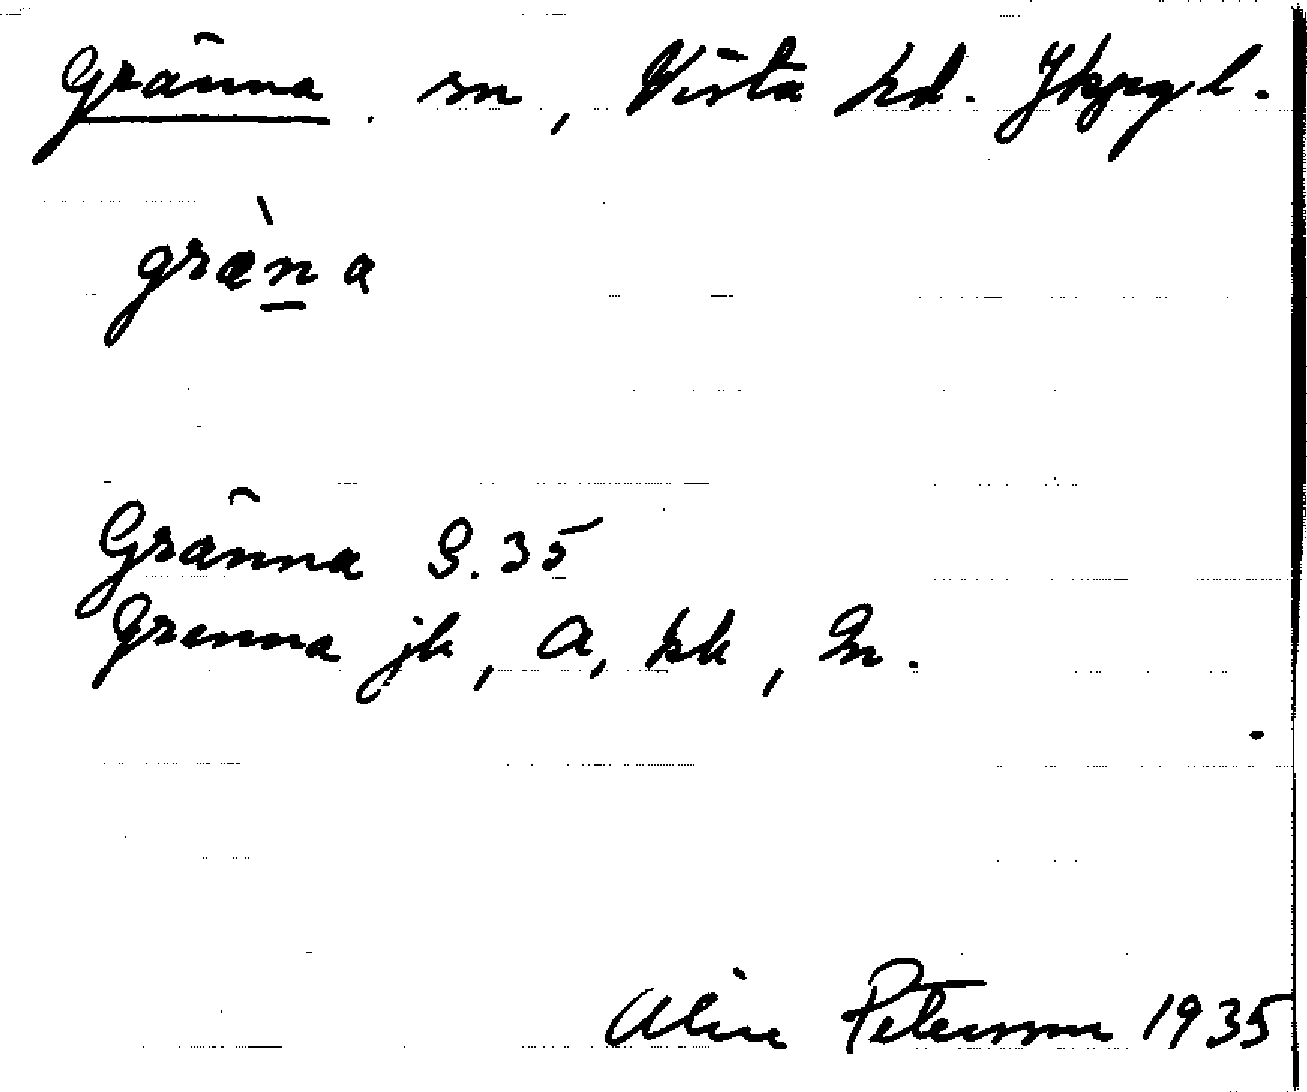 Gränna sn, Vista hd. Jkpgl.
græ̀n̲a
Gränna S. 35
Grenna jb, A, hk, Gn.
Petersson 1935